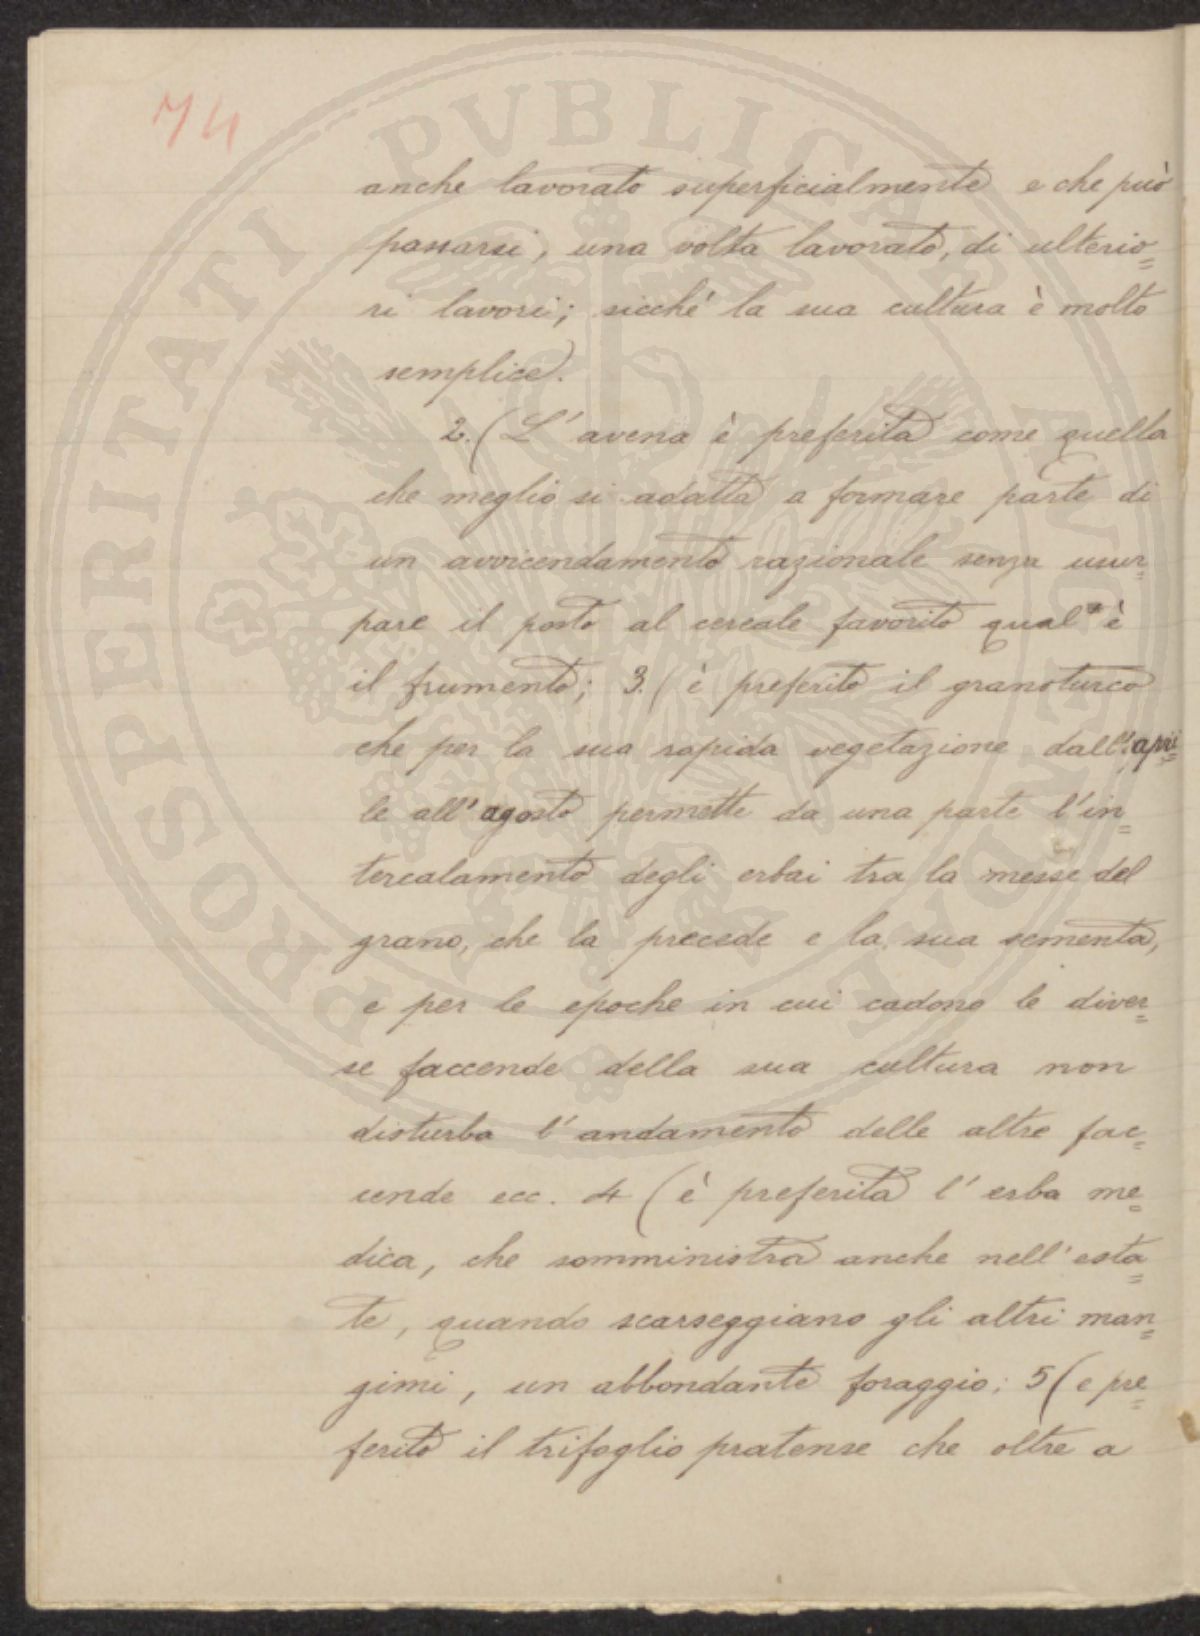 74
PROSPERITATI PVBLICAE AVGENDAE
anche lavorato superficialmente e che può
passarsi, una volta lavorato, di ulterio=
ri lavori; sicché la sua cultura è molto
semplice.
2. (L' avena è preferita come quella
che meglio si adatta a formare parte di
un avvicendamento razionale senza usur=
pare il posto al cereale favorito qual' è
il frumento; 3. ( è preferito il granoturco
che per la sua rapida vegetazione dall' apri=
le all' agosto permette da una parte l' in=
tercalamento degli erbai tra la messe del
grano, che la precede e la sua sementa,
e per le epoche in cui cadono le diver=
se faccende della sua cultura non
disturba l' andamento delle altre fac=
cende ecc. 4 ( è preferita l' erba me=
dica, che somministra anche nell' esta=
te, quando scarseggiano gli altri man=
gimi, un abbondante foraggio; 5 ( e pre=
ferito il trifoglio pratense che oltre a